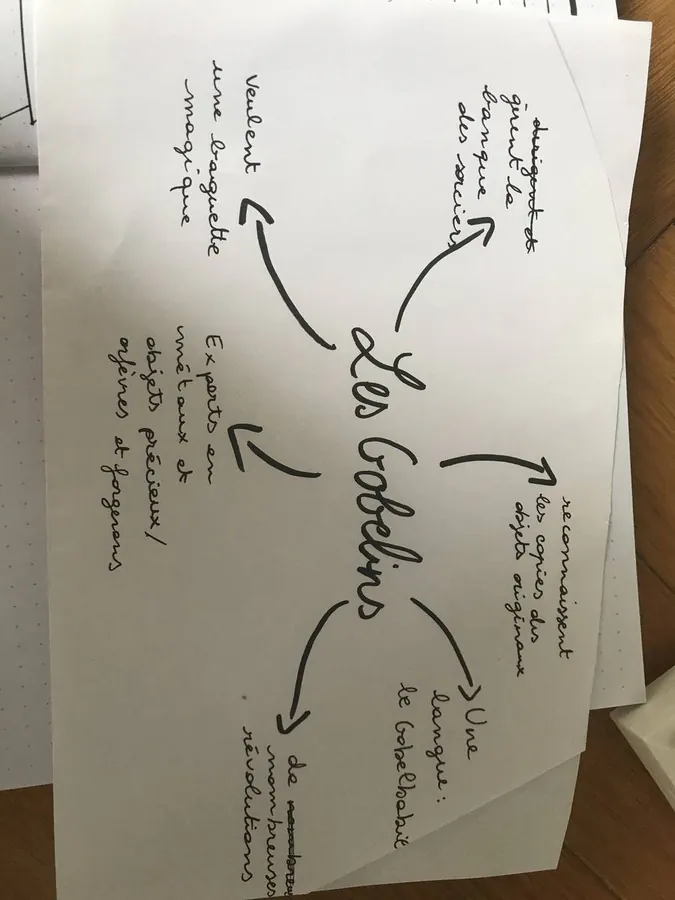 dirigent et
gèrent la
banque
des sorciers
reconnaissent
les copies des
objets originaux
Une
langue :
le Gobelbabil
Les Gobelins
Veulent
une baguette
magique
Experts en
métaux et
objets précieux /
orfèvres et forgerons
de
nombreuses
révolutions